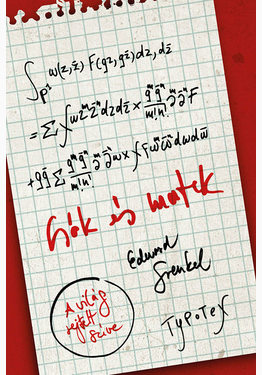 ∫_{P¹} ω(z,z̄) F(qz,q̄z̄)dz,dz̄
= Σ ∫ ω zᵐ z̄ⁿ dz dz̄ × qᵐ q̄ⁿ / m!n! ∂ᵐ ∂̄ⁿ F
+ q q̄ Σ qᵐ q̄ⁿ / m!n! ∂ᵐ ∂̄ⁿ ω × ∫ F ωᵐ ω̄ⁿ dω dω̄
Csók és matek
Edward
Frenkel
A világ
rejtett
szíve
TYPOTEX